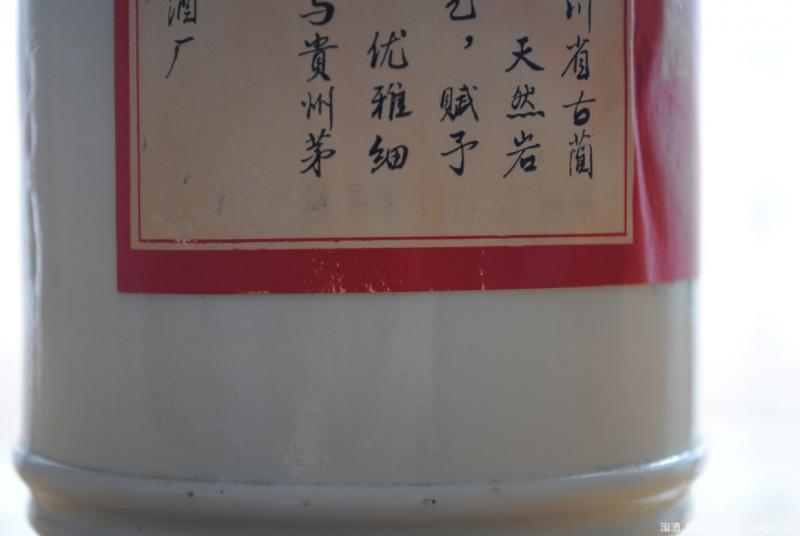 川省古蔺
天然岩
艺，赋予
优雅细
与貴州茅
酒厂
淘酒